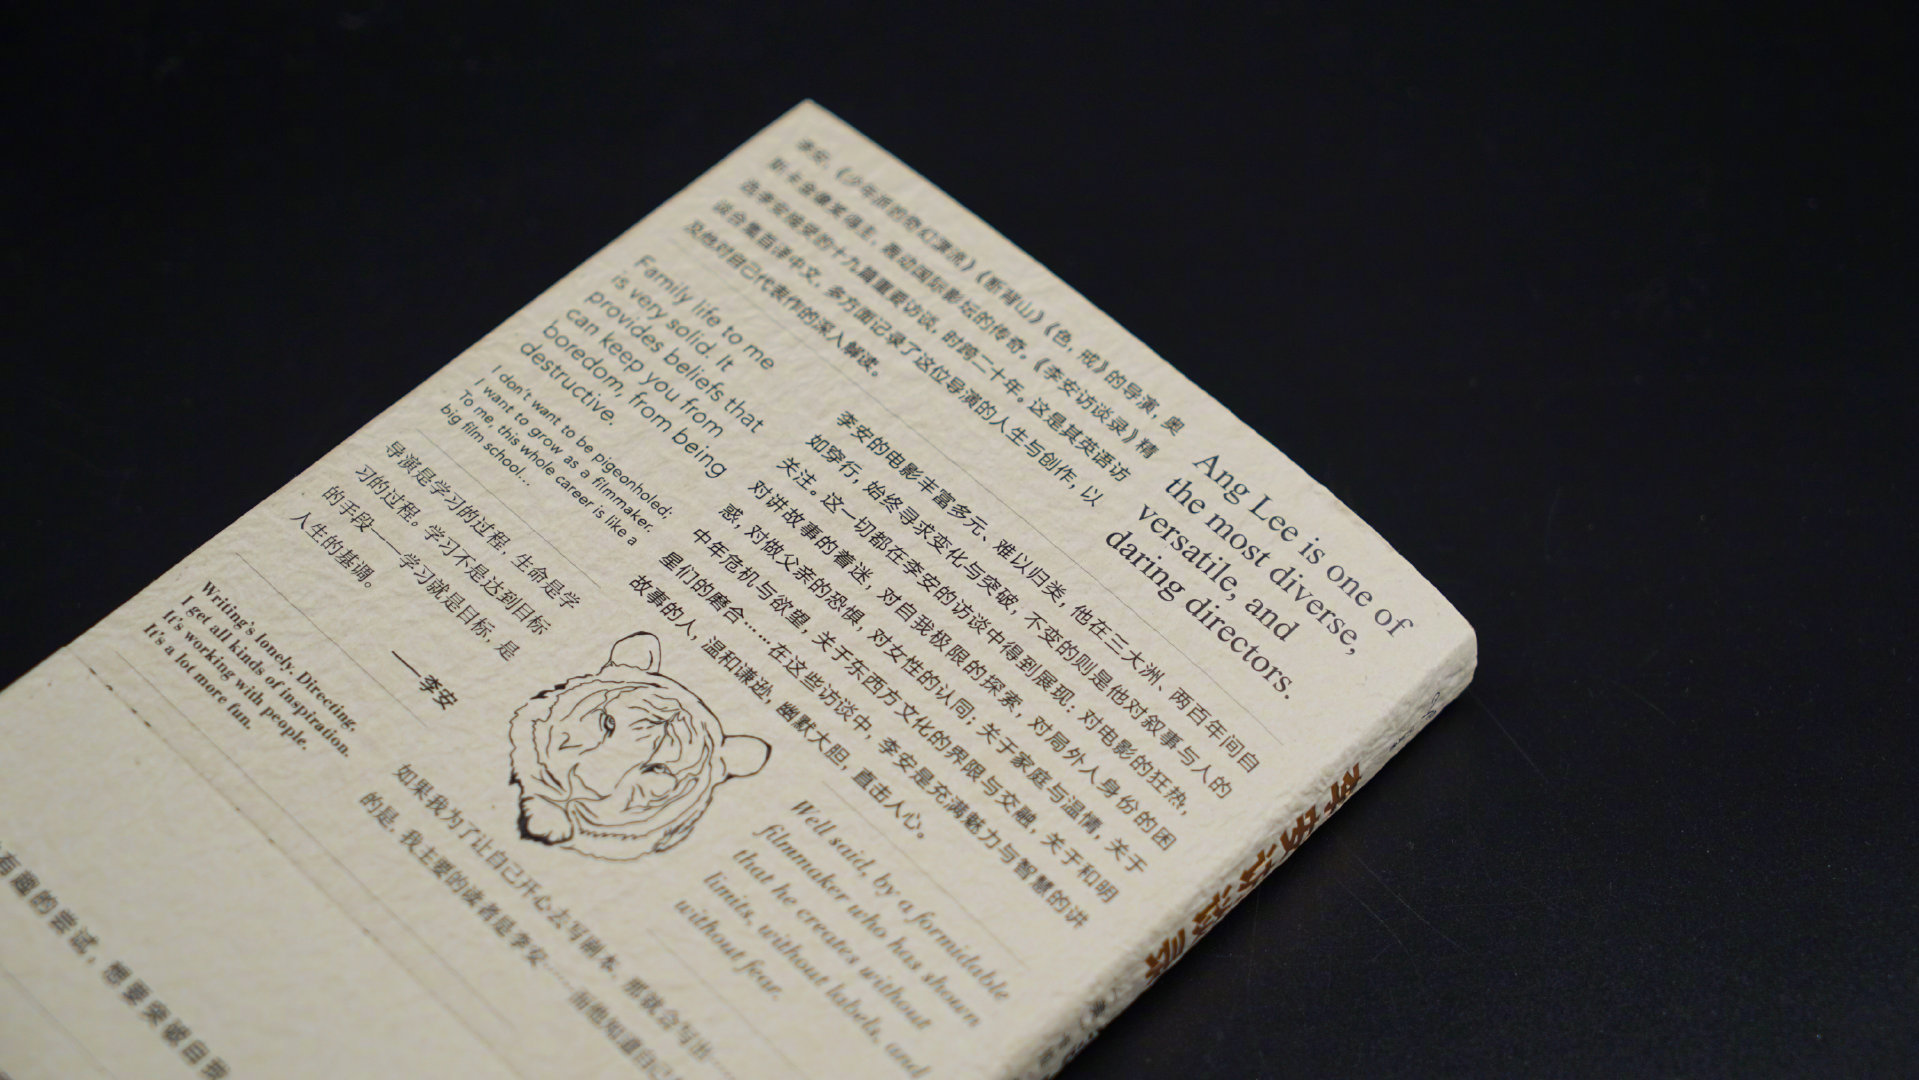 李安，《少年派的奇幻漂流》《断背山》《色，戒》的导演，奥
斯卡金像奖得主，轰动国际影坛的传奇。《李安访谈录》精
选李安接受的十九篇重要访谈，时跨二十年。这是其英语访
谈合集首译中文，多方面记录了这位导演的人生与创作，以
及他对自己代表作的深入解读。
Ang Lee is one of
the most diverse,
versatile, and
daring directors.
Family life to me
is very solid. It
provides beliefs that
can keep you from
boredom, from being
destructive.
I don't want to be pigeonholed;
I want to grow as a filmmaker.
To me, this whole career is like a
big film school...
李安的电影丰富多元、难以归类，他在三大洲、两百年间自
如穿行，始终寻求变化与突破，不变的则是他对叙事与人的
关注。这一切都在李安的访谈中得到展现：对电影的狂热，
对讲故事的着迷，对自我极限的探索，对局外人身份的困
惑，对做父亲的恐惧，对女性的认同；关于家庭与温情，关于
中年危机与欲望，关于东西方文化的界限与交融，关于和明
星们的磨合……在这些访谈中，李安是充满魅力与智慧的讲
故事的人，温和谦逊，幽默大胆，直击人心。
导演是学习的过程，生命是学
习的过程。学习不是达到目标
的手段——学习就是目标，是
人生的基调。
——李安
Writing's lonely. Directing,
I get all kinds of inspiration.
It's working with people.
It's a lot more fun.
Well said, by a formidable
filmmaker who has shown
that he creates without
limits, without labels, and
without fear.
如果我为了让自己开心去写剧本，那就会写出
的是，我主要的读者是李安……而他知道自己
有趣的尝试，想要突破自我
李安访谈录